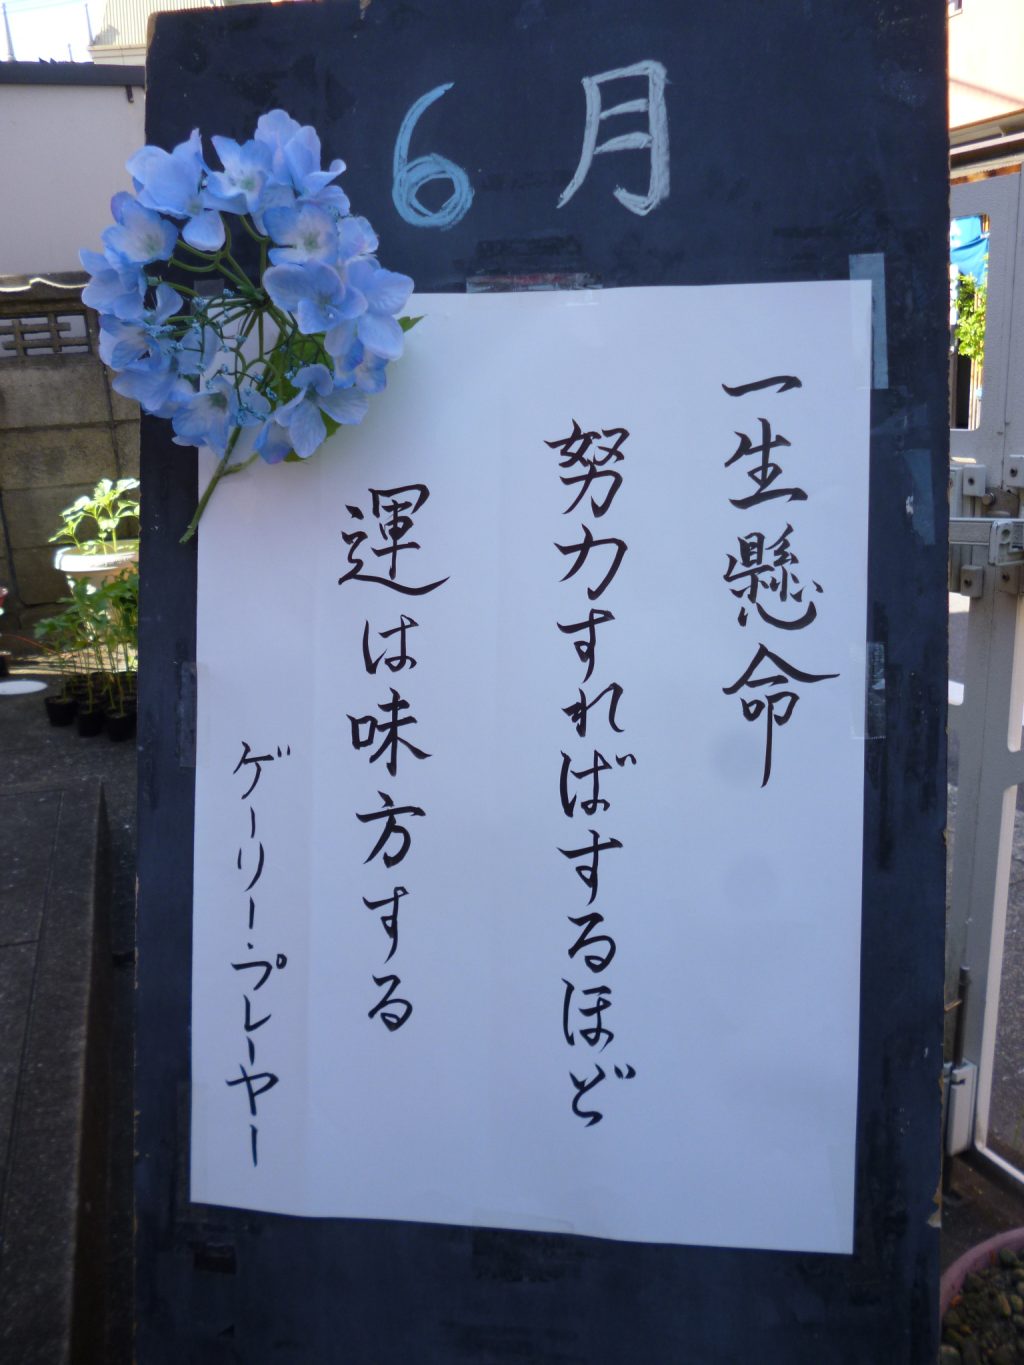 6月
一生懸命
努力すればするほど
運は味方する
ゲーリー・プレーヤー